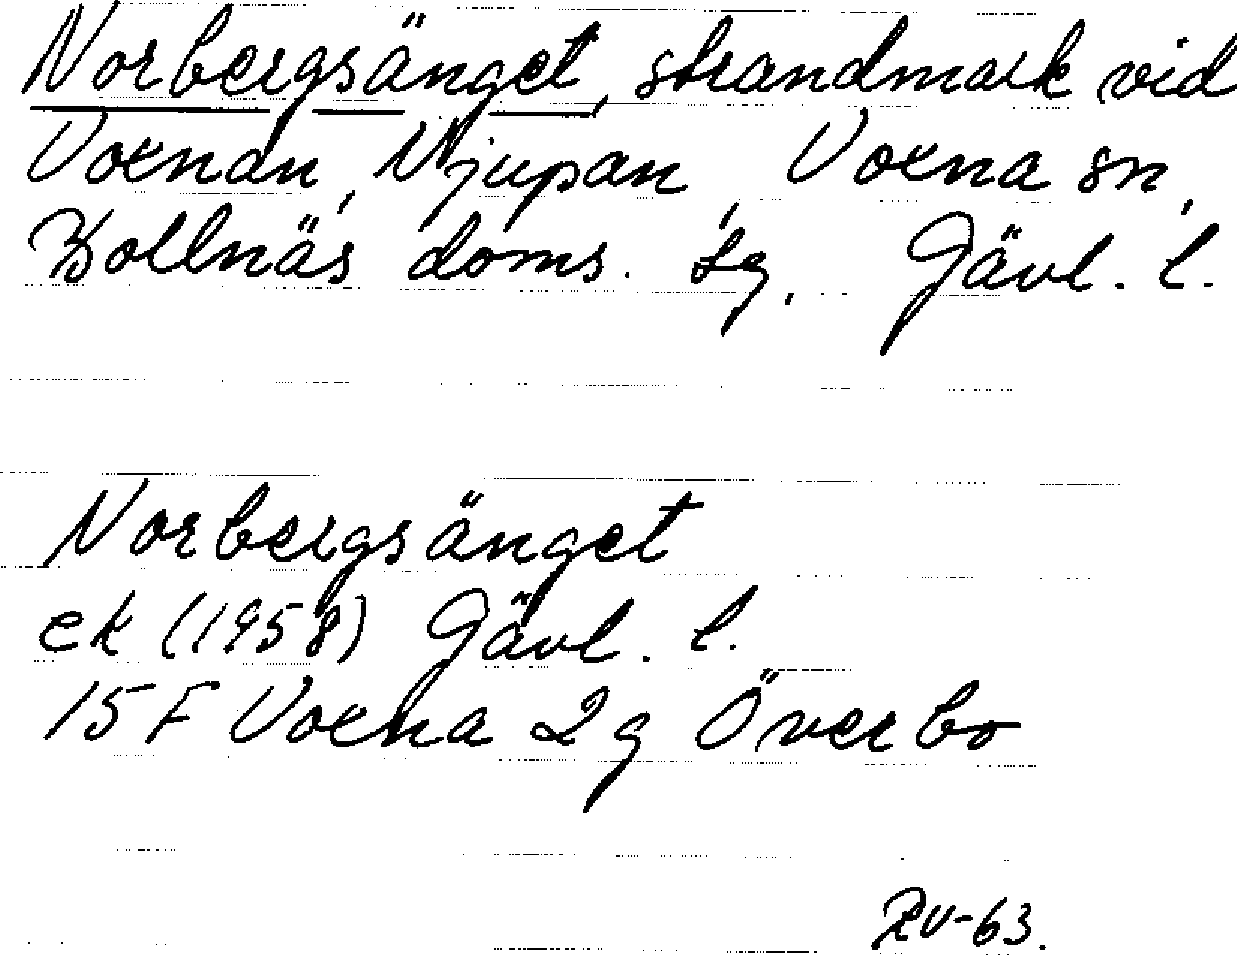 Norbergsänget, strandmark vid
Voxnan, Njupan, Voxna sn,
Bollnäs doms. sg, Gävl. l.
Norbergsänget
ek (1958) Gävl. l.
15 F Voxna 2 g Överbo
RV-63.